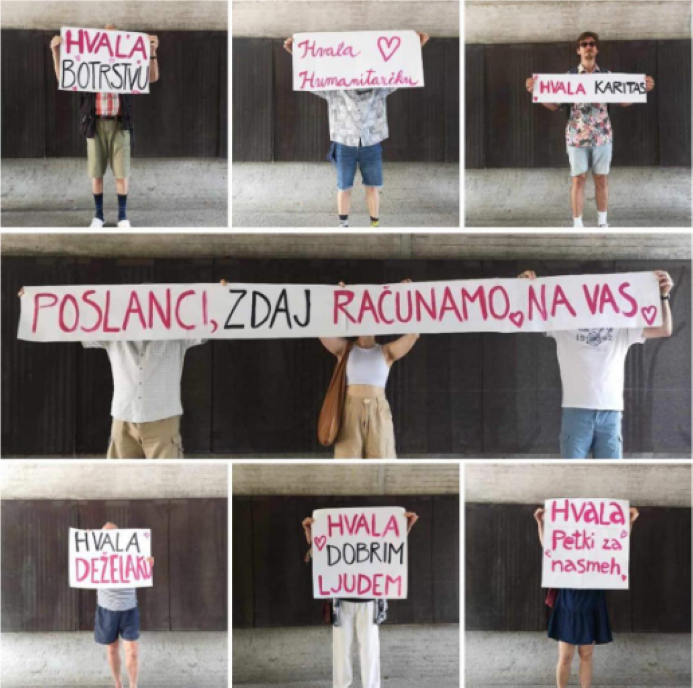 HVALA
BOTRSTVU
Hvala
Humanitarčku
HVALA KARITAS
POSLANCI, ZDAJ RAČUNAMO NA VAS.
HVALA
DEŽELAKU
HVALA
DOBRIM
LJUDEM
Hvala
Petki za
nasmeh